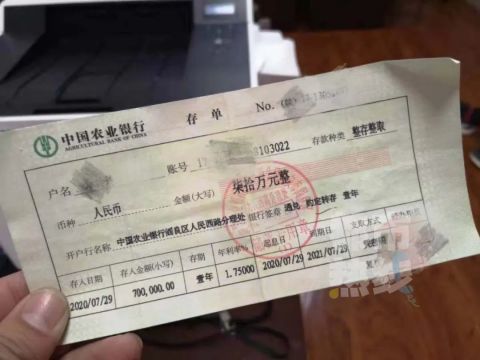 中国农业银行 存单 No.
AGRICULTURAL BANK OF CHINA
户名 账号 103022 存款种类 整存整取
币种 人民币 金额(大写) 柒拾万元整
开户行名称 中国农业银行 区人民西路分理处 银行签章 通兑 约定转存 壹年
存入日期 存入金额(小写) 存期 年利率% 起息日 到期日 支取方式
2020/07/29 700,000.00 壹年 1.75000 2020/07/29 2021/07/29